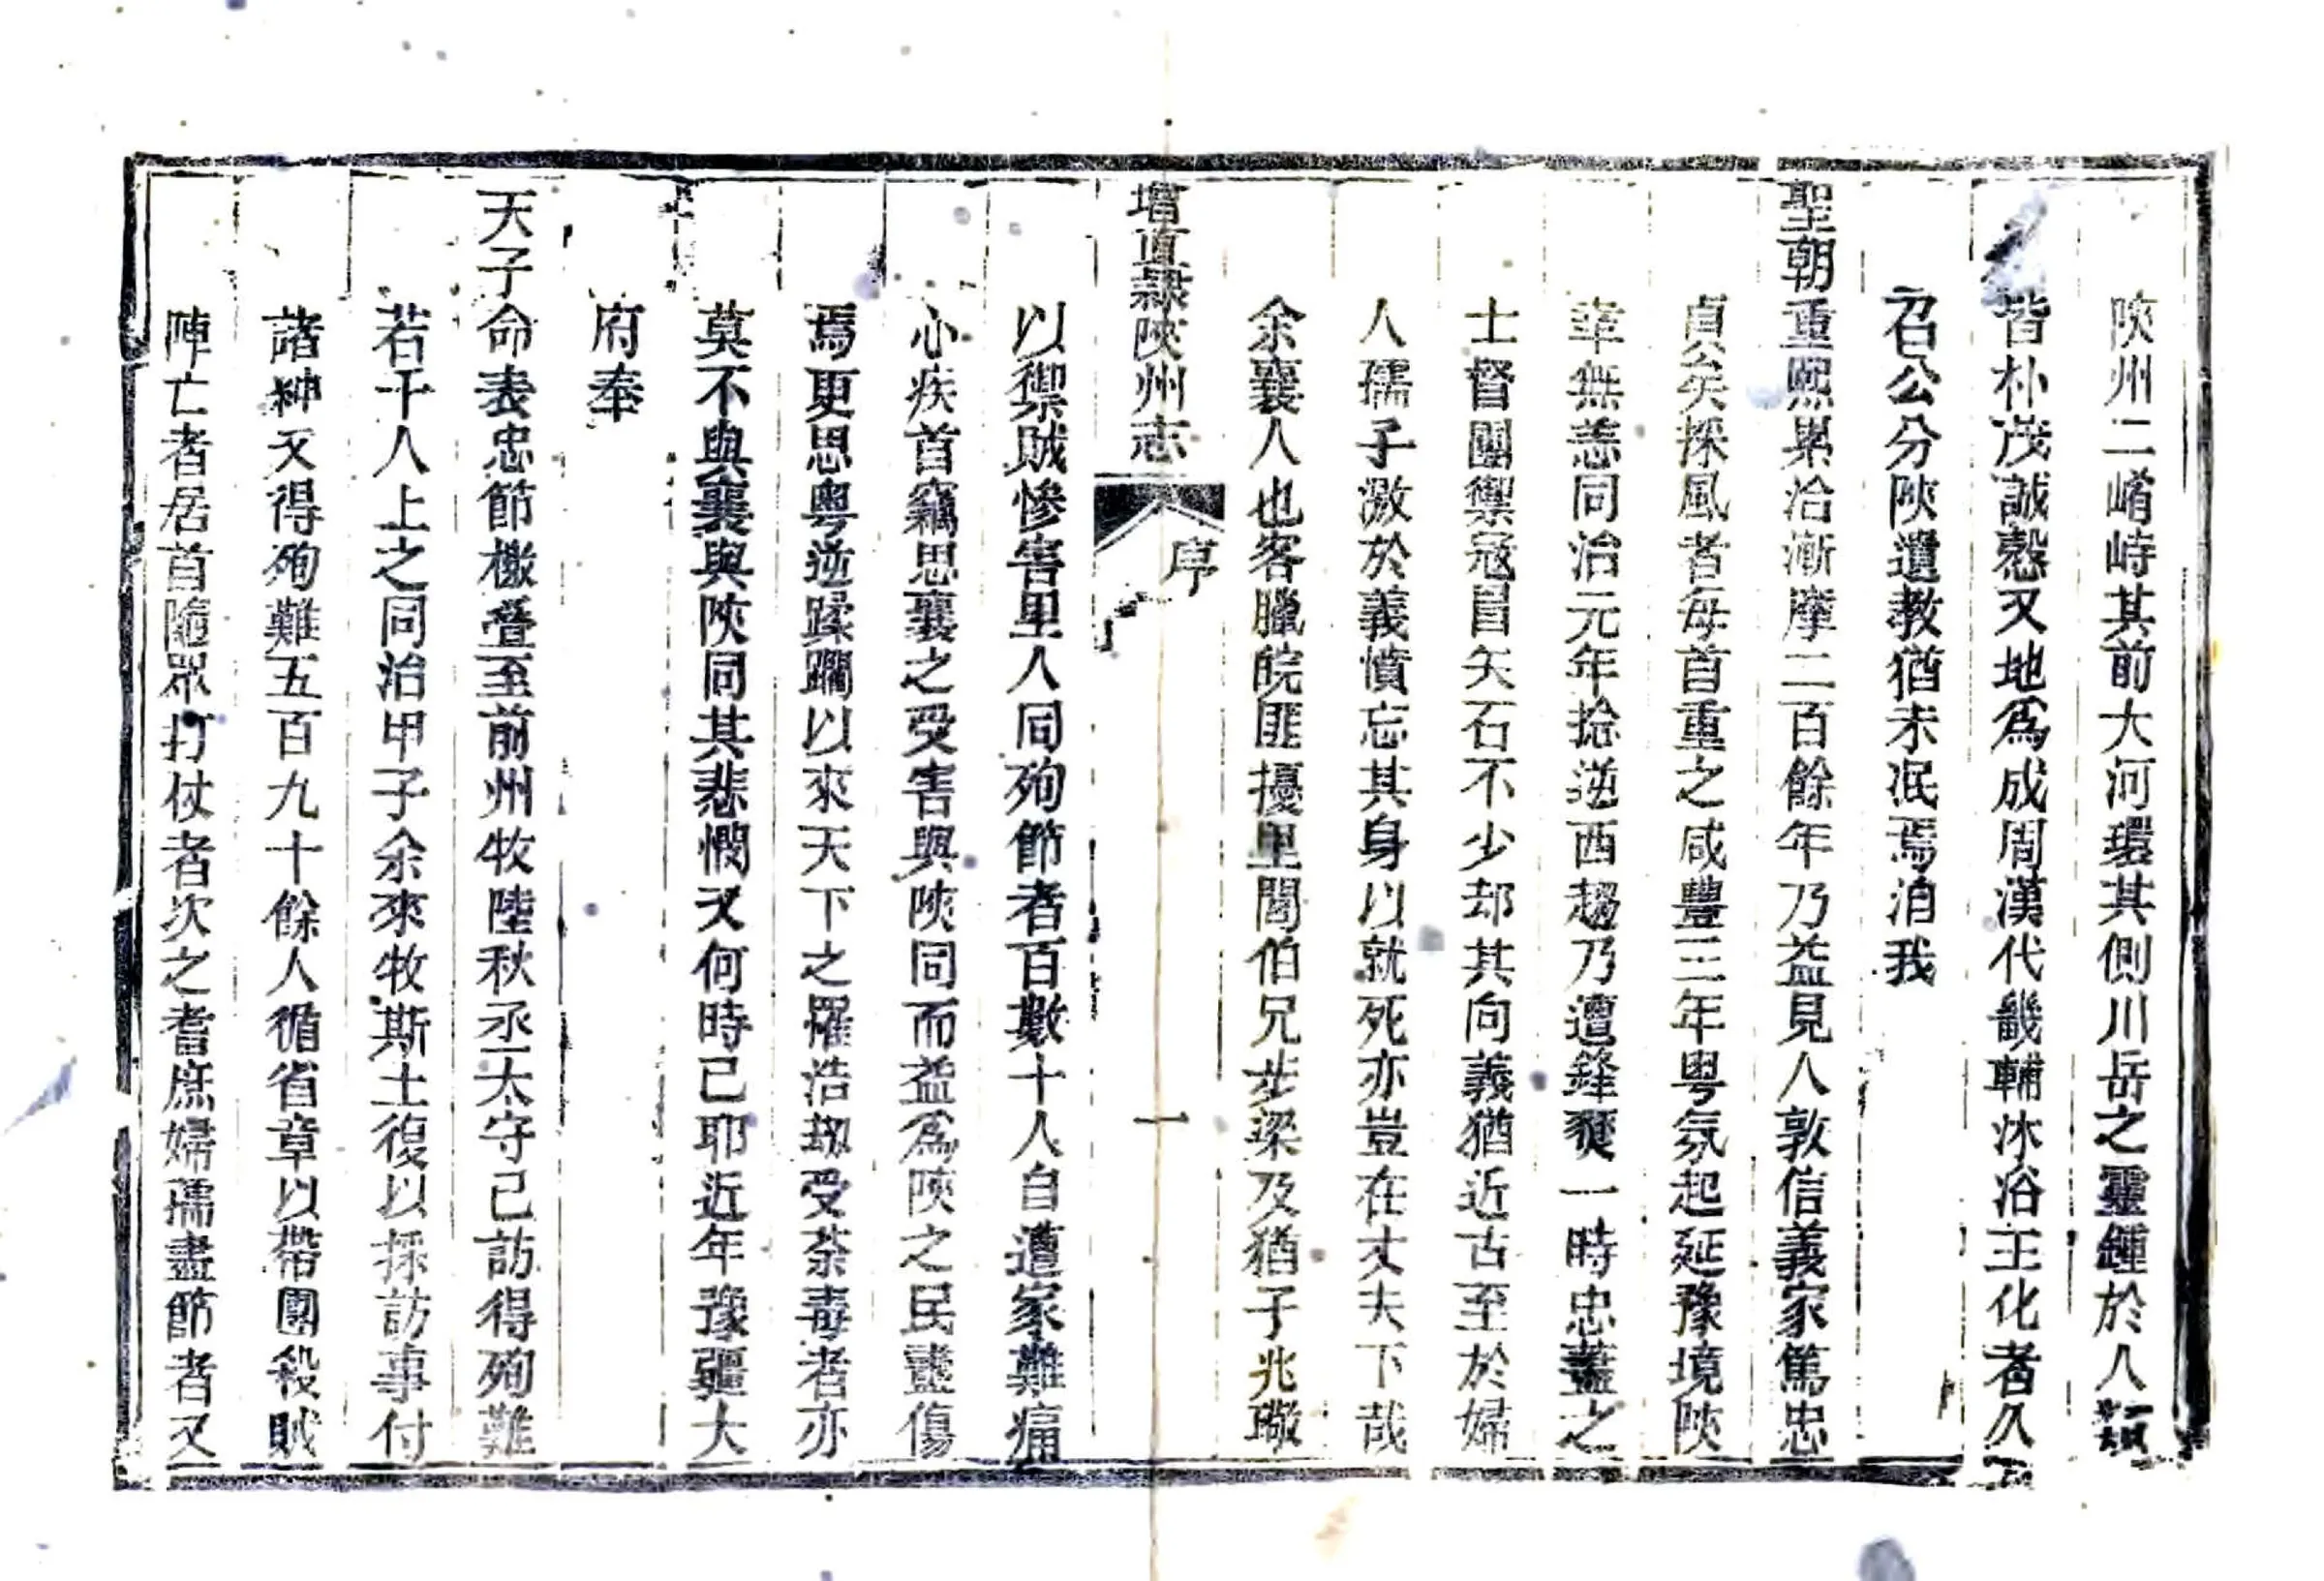 陝州二崤峙其前大河環其側川岳之靈鍾於人類
皆朴茂誠慤又地爲成周漢代畿輔沐浴王化者久
召公分陝遺教猶未泯焉洎我
聖朝重熙累洽漸摩二百餘年乃益見人敦信義家篤忠
貞矣採風者每首重之咸豐三年粤氛起延豫境陝
幸無恙同治元年捻逆西趨乃遭鋒燹一時忠藎之
士督團禦寇冒矢石不少却其向義猶近古至於婦
人孺子激於義憤忘其身以就死亦豈在丈夫下哉
余襄人也客臘皖匪擾里閭伯兄步梁及猶子兆璥
增直隸陝州志
序
一
以禦賊慘害里人同殉節者百數十人自遭家難痛
心疾首竊思襄之受害與陝同而益爲陝之民盡傷
焉更思粤逆蹂躪以來天下之罹浩刼受荼毒者亦
莫不與襄與陝同其悲憫又何時已耶近年豫疆大
府奉
天子命表忠節檄叠至前州牧陸秋丞太守已訪得殉難
若干人上之同治甲子余來牧斯土復以採訪事付
諸紳又得殉難五百九十餘人循省章以帶團殺賊
陣亡者居首隨眾打仗者次之耆庶婦孺盡節者又